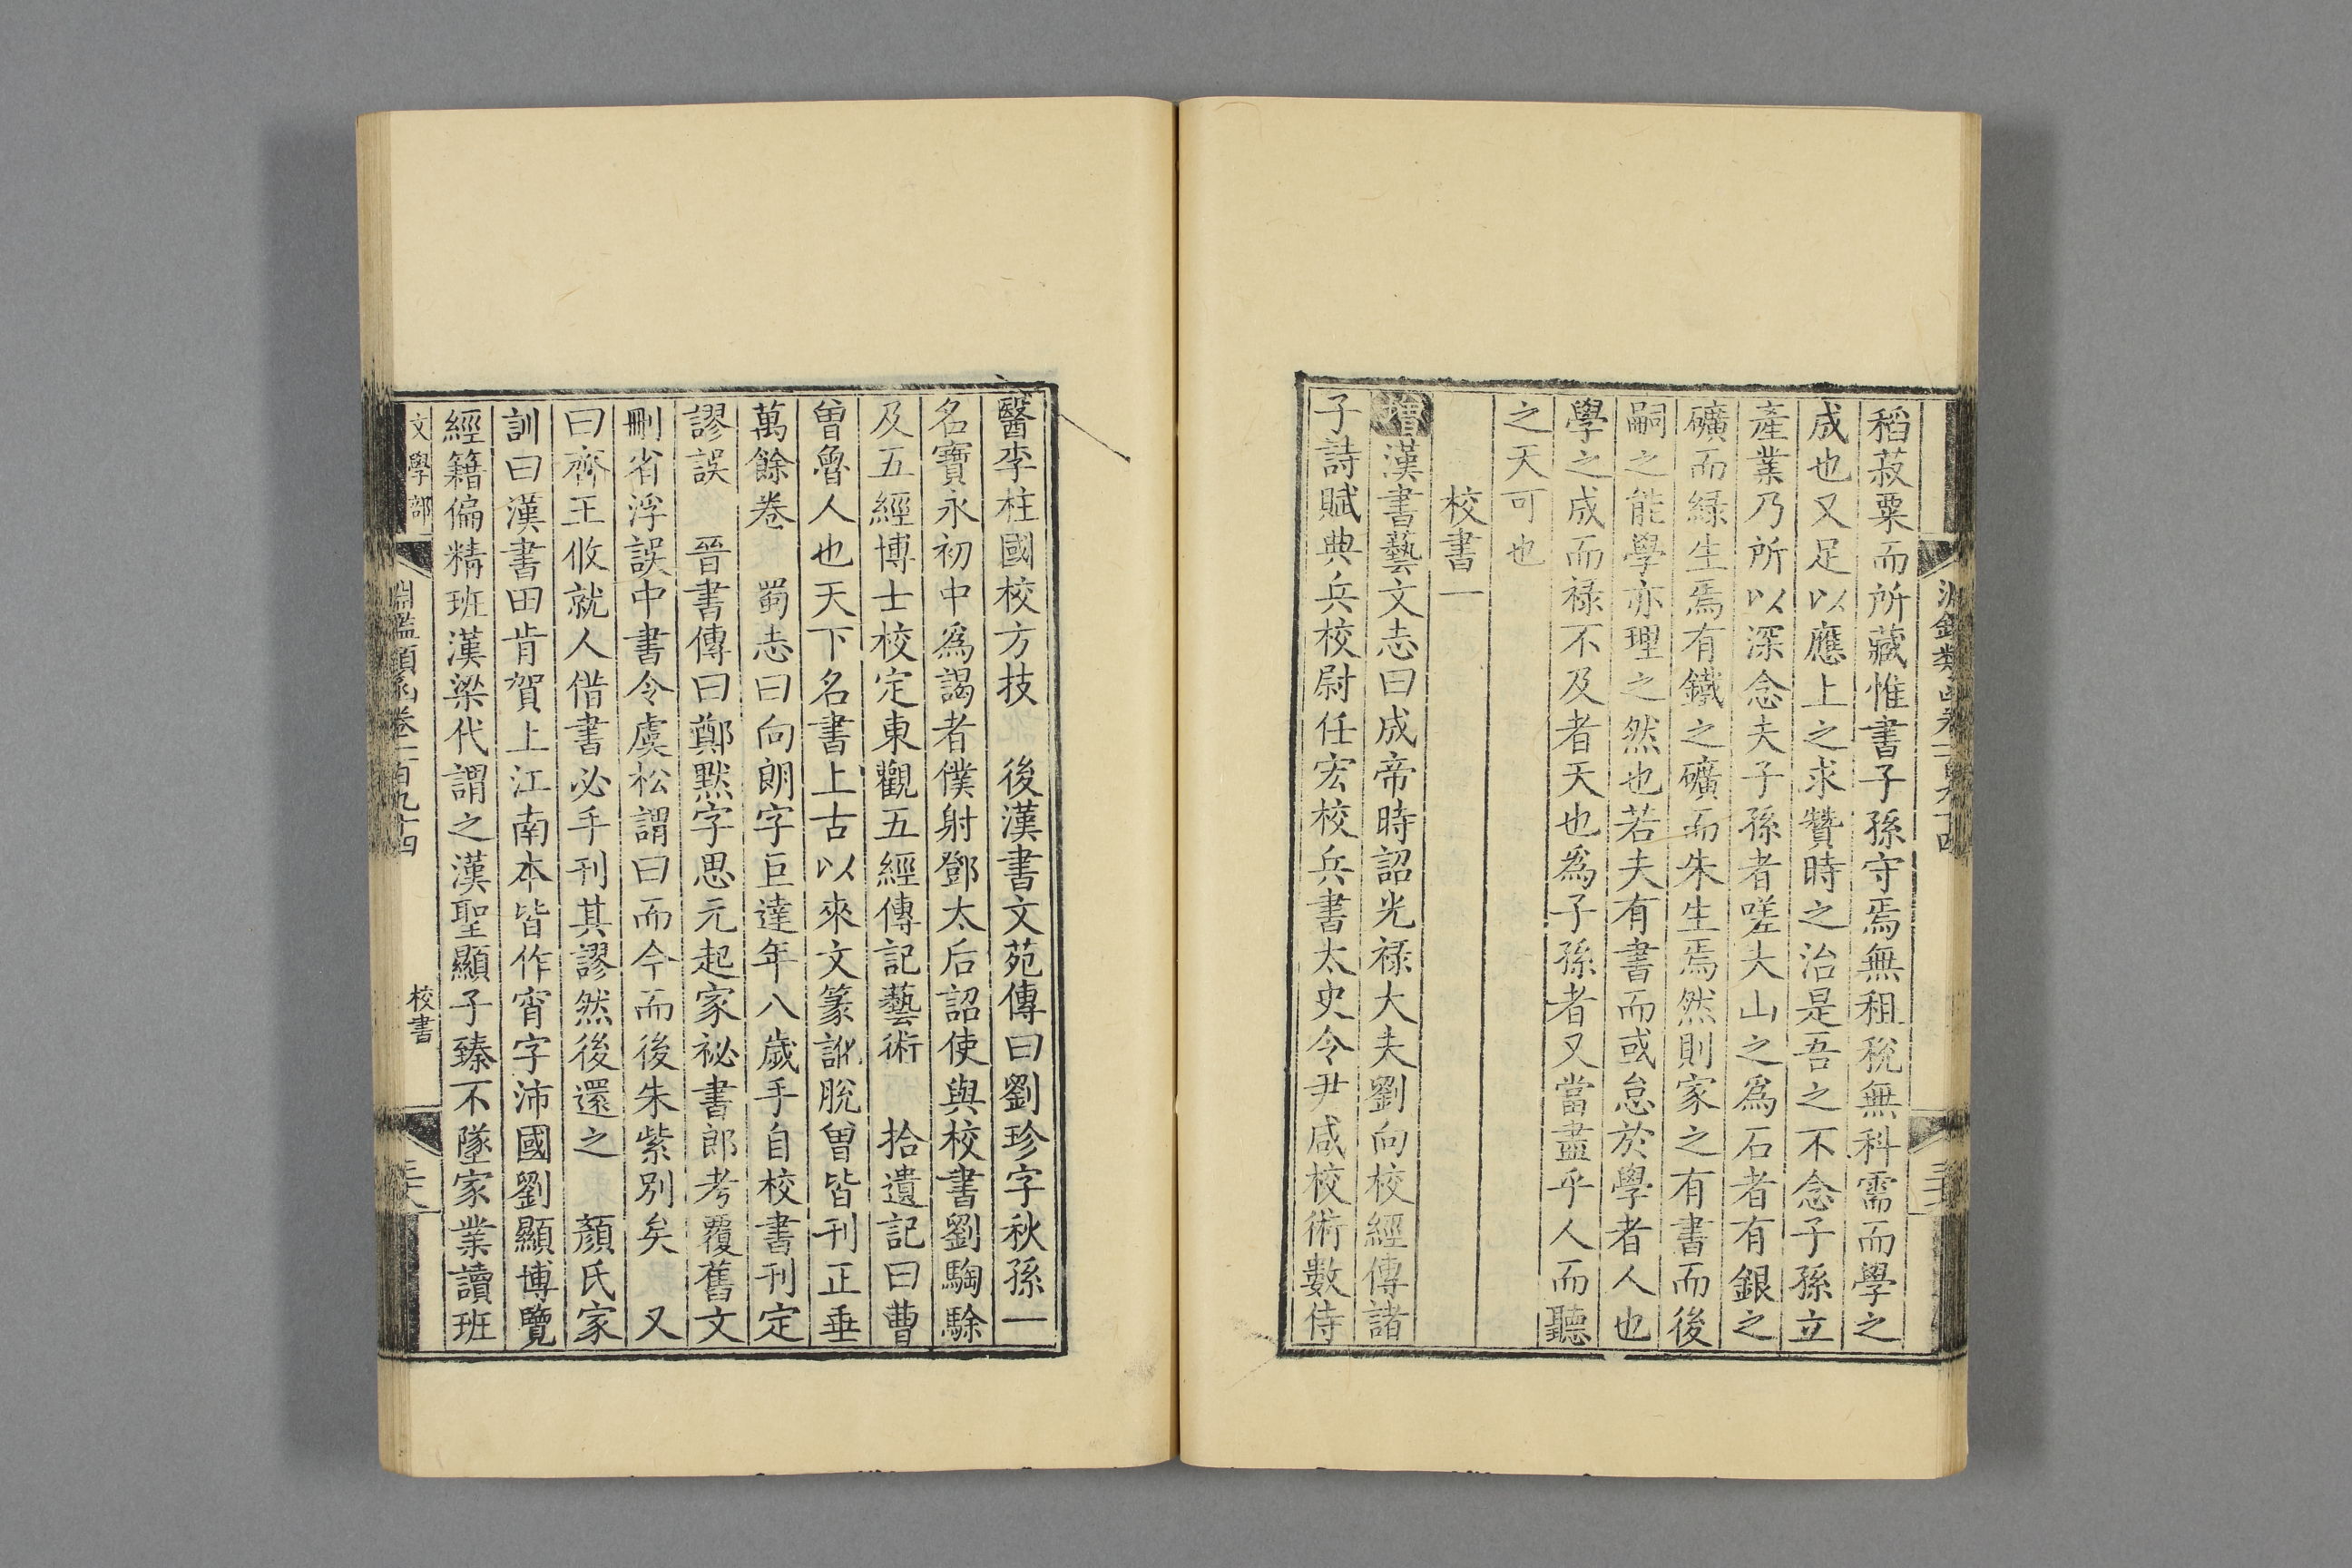 稻菽粟而所藏惟書子孫守焉無租稅無科需而學之
成也又足以應上之求贊時之治是吾之不念子孫立
產業乃所以深念夫子孫者嗟夫山之爲石者有銀之
礦而緑生焉有鐵之礦而朱生焉然則家之有書而後
嗣之能學亦理之然也若夫有書而或怠於學者人也
學之成而禄不及者天也爲子孫者又當盡乎人而聽
之天可也
校書一
增漢書藝文志曰成帝時詔光禄大夫劉向校經傳諸
子詩賦典兵校尉任宏校兵書太史令尹咸校術數侍
醫李柱國校方技　後漢書文苑傳曰劉珍字秋孫一
名寶永初中爲謁者僕射鄧太后詔使與校書劉騊駼
及五經博士校定東觀五經傳記藝術　拾遺記曰曹
曾魯人也天下名書上古以來文篆訛脫曾皆刊正垂
萬餘卷　蜀志曰向朗字巨達年八歲手自校書刊定
謬誤　晉書傳曰鄭默字思元起家祕書郎考覆舊文
刪省浮誤中書令虞松謂曰而今而後朱紫別矣　又
曰齊王攸就人借書必手刊其謬然後還之　顏氏家
訓曰漢書田肯賀上江南本皆作宵字沛國劉顯博覽
經籍偏精班漢梁代謂之漢聖顯子臻不墜家業讀班
文學部
淵鑑類函卷一百九十四
校書